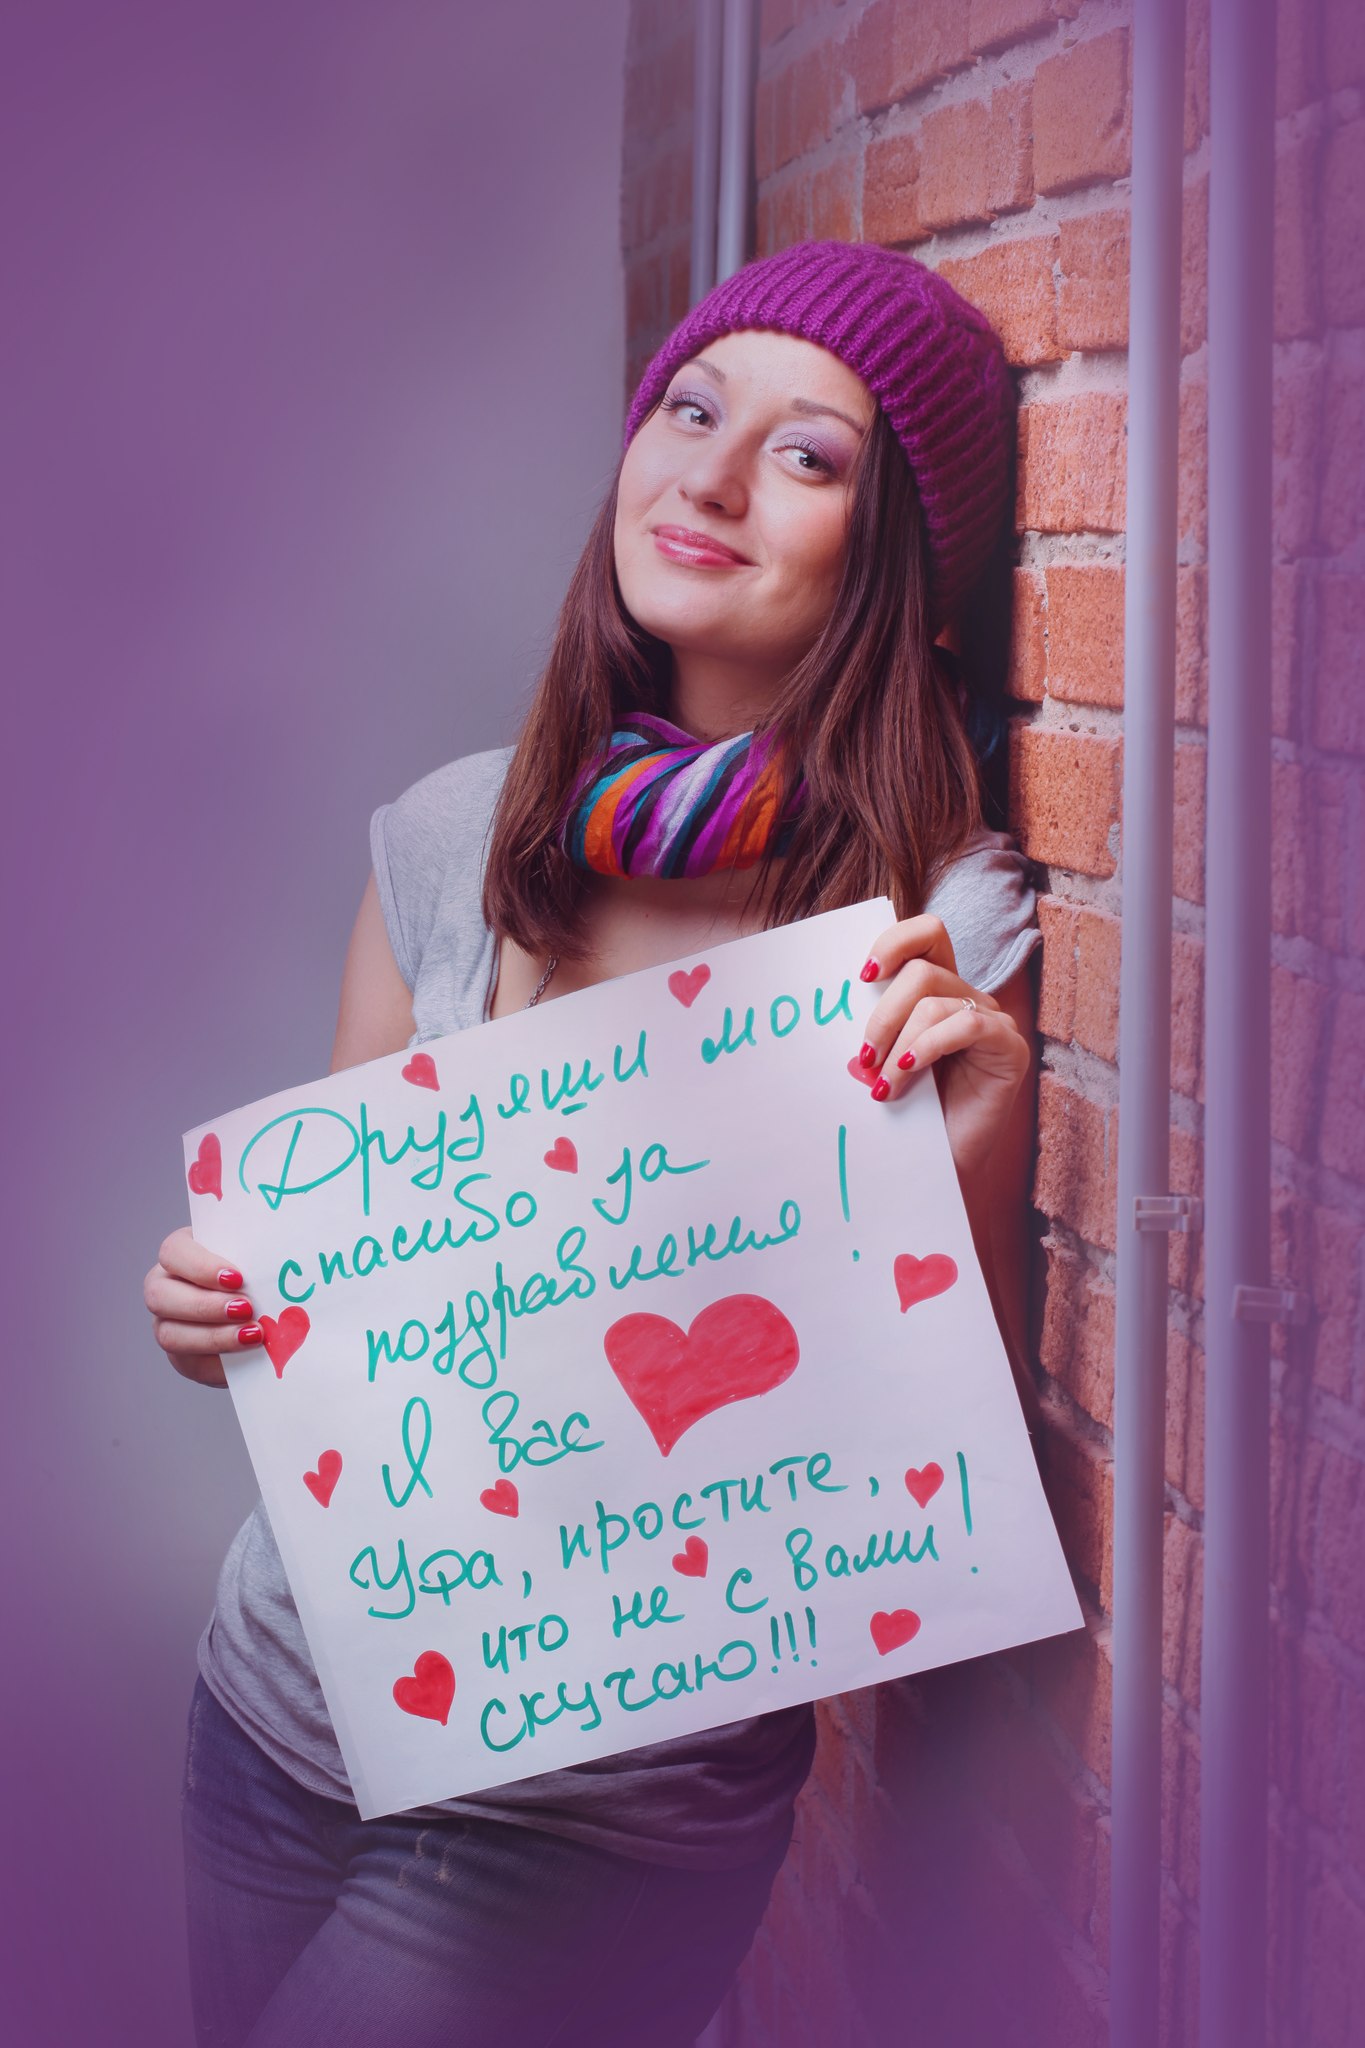 Друзяши мои
спасибо за
поздравления!
Я вас
Уфа, простите,
что не с вами!
скучаю!!!